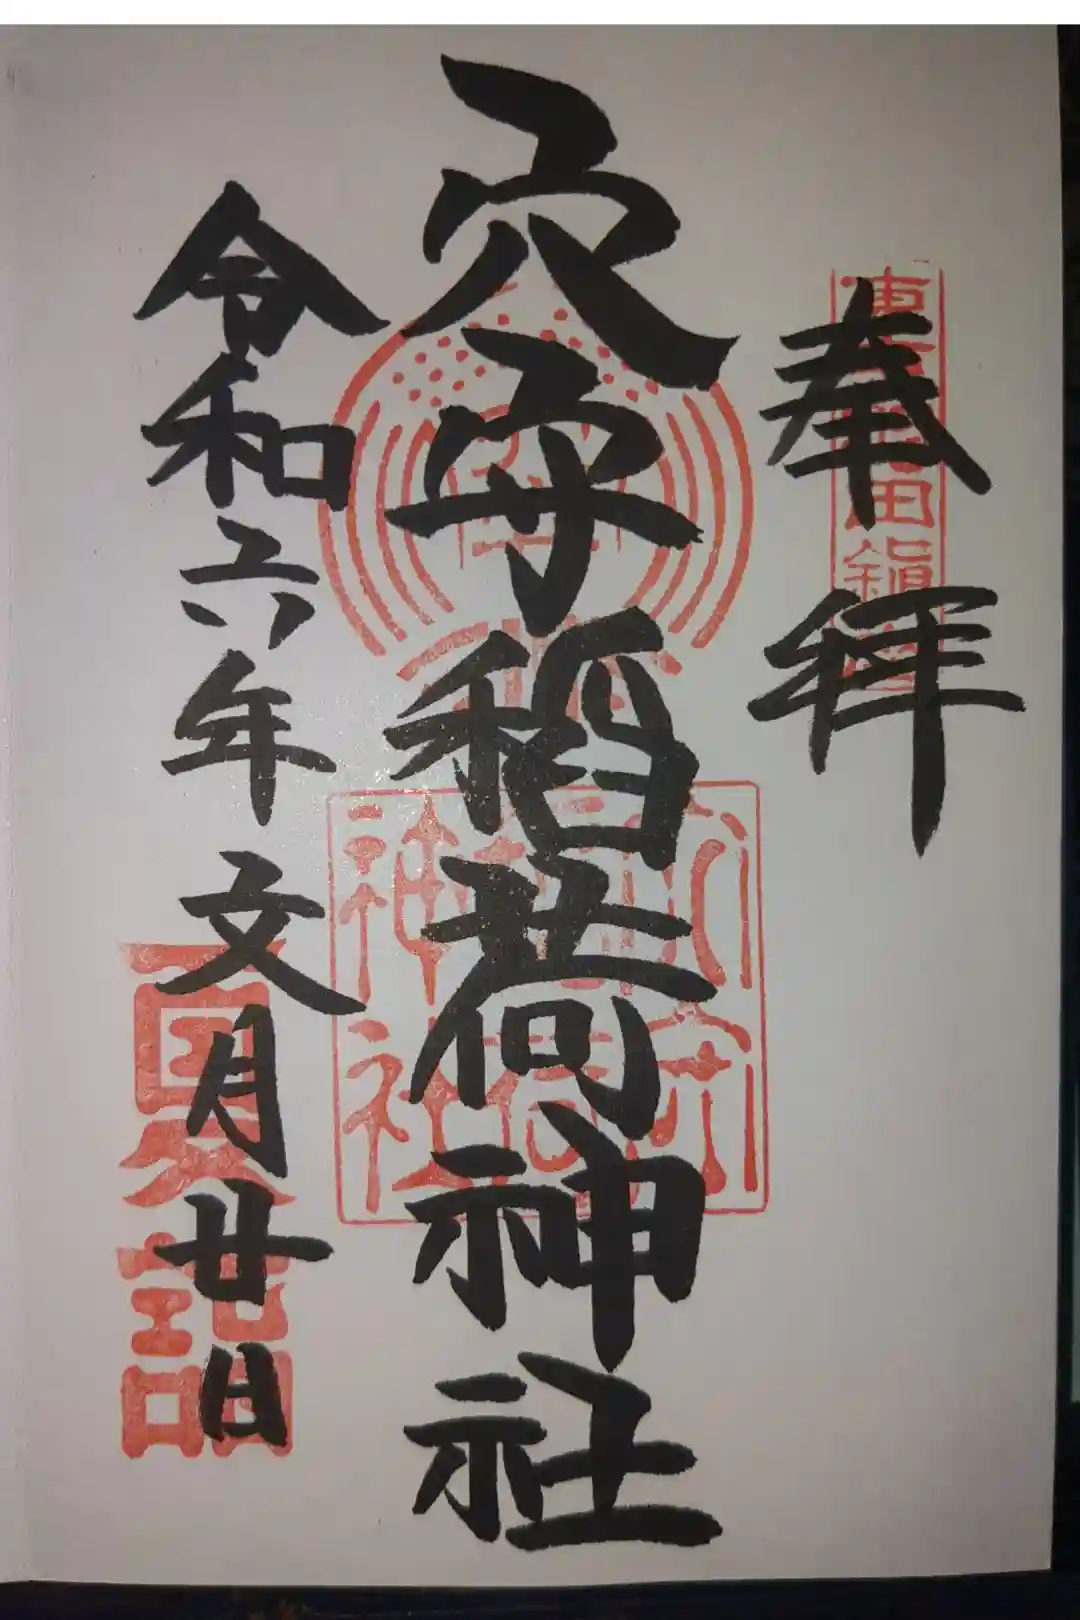 東京羽田鎮座
奉拝
穴守稲荷神社
穴守
稲荷
神社
令和六年文月廿日
夏詣